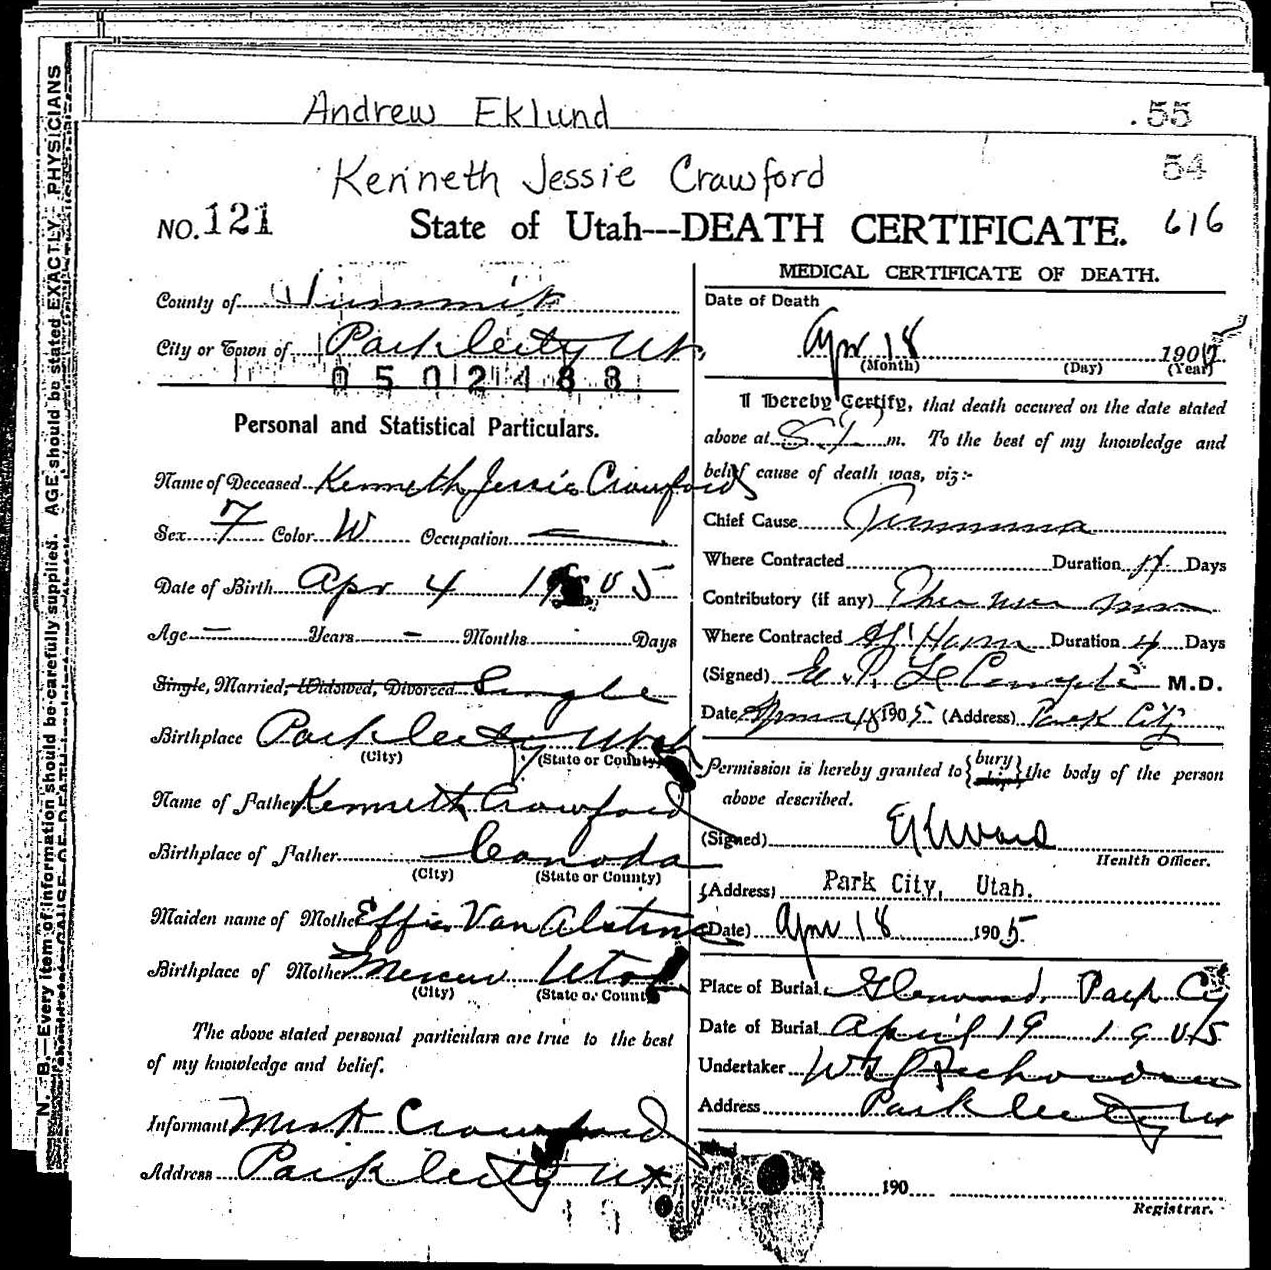 Andrew Eklund
.55
Kenneth Jessie Crawford
54
NO. 121 State of Utah---DEATH CERTIFICATE. 616
N. B.—Every item of information should be carefully supplied. AGE should be stated EXACTLY. PHYSICIANS
County of Summit
City or Town of Park City Ut.
0502188
Personal and Statistical Particulars.
Name of Deceased Kenneth Jessie Crawford
Sex 7 Color W Occupation —
Date of Birth Apr 4 1905
Age — Years — Months Days
Single, Married, Widowed, Divorced Single
Birthplace Park City Utah
(City) (State or County)
Name of Father Kenneth Crawford
Birthplace of Father Canada
(City) (State or County)
Maiden name of Mother Effie Van Alstine
Birthplace of Mother Mercur Utah
(City) (State or County)
The above stated personal particulars are true to the best
of my knowledge and belief.
Informant Mrs K Crawford
Address Park City Ut
MEDICAL CERTIFICATE OF DEATH.
Date of Death
Apr 18 190
(Month) (Day) (Year)
I Hereby Certify, that death occured on the date stated
above at m. To the best of my knowledge and
belief cause of death was, viz:-
Chief Cause
Where Contracted Duration Days
Contributory (if any)
Where Contracted Duration 4 Days
(Signed) M.D.
Date 18 1905 (Address) Park City
Permission is hereby granted to {bury ship} the body of the person
above described.
(Signed) Ward
Health Officer.
(Address) Park City, Utah.
(Date) Apr 18 1905
Place of Burial Glenwood, Park City
Date of Burial April 19 1905
Undertaker Richardson
Address Park City Ut
190
Registrar.